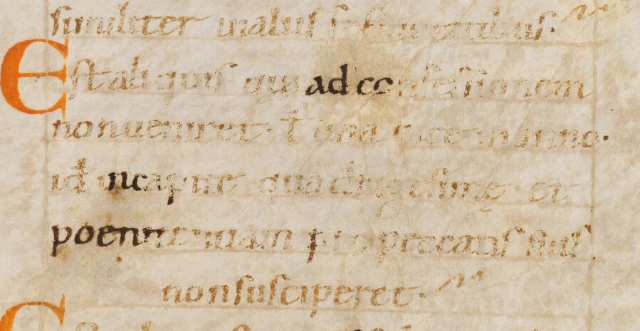 similiter in aliis subsequentibus.
Est aliquis qui ad confessionem
non veniret. t una vice in anno.
id in capite quadragesime et
poenitentiam pro peccatis suis
non susciperet.